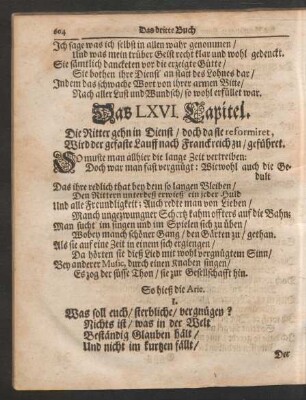 604 Das dritte Buch
Ich sage was ich selbst in allen wahr genommen /
Und was mein trüber Geist recht klar und wohl gedenckt.
Sie sämtlich danckten vor die erzeigte Gütte /
Sie bothen ihr Dienst an statt des Lohnes dar /
Indem das schwache Wort von ihrer armen Bitte /
Nach aller Lust und Wundsch / so wohl erfüllet war.
Das LXVI. Capitel.
Die Ritter gehn in Dienst / doch da sie reformiret,
Wird der gefaste Lauff nach Franckreich zu / geführet.
So muste man allhier die lange Zeit vertreiben:
Doch war man fast vergnügt: Wiewohl auch die Ge-
dult
Das ihre redlich that bey dem so langen Bleiben /
Den Rittern unterdeß erwieß ein jeder Huld
Und alle Freundligkeit: Auch redte man von Lieben /
Manch ungezwungner Schertz kahm offters auf die Bahn:
Man sucht im singen und im Spielen sich zu üben /
Wobey manch schöner Gang / den Gärten zu / gethan.
Als sie auf eine Zeit in einem sich ergiengen /
Da hörten sie diß Lied mit wohl vergnügtem Sinn /
Bey anderer Music, durch einen Knaben singen /
Es zog der süsse Thon / sie zur Gesellschafft hin.
So hieß die Arie.
I.
Was soll euch / sterbliche / vergnügen ?
Nichts ist / was in der Welt
Beständig Glauben hält /
Und nicht im kurtzen fällt /
Der